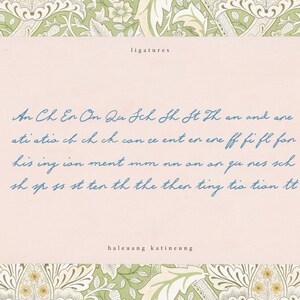 ligatures
An Ch Er On Qu Sch Sh St Th an and are
ati atio ch ck ch con ce ent er ere ff fi fl for
his ing ion ment mm nn on or qu res sch
sh sp ss st ter th the ther ting tio tion tt
haleuang katineung